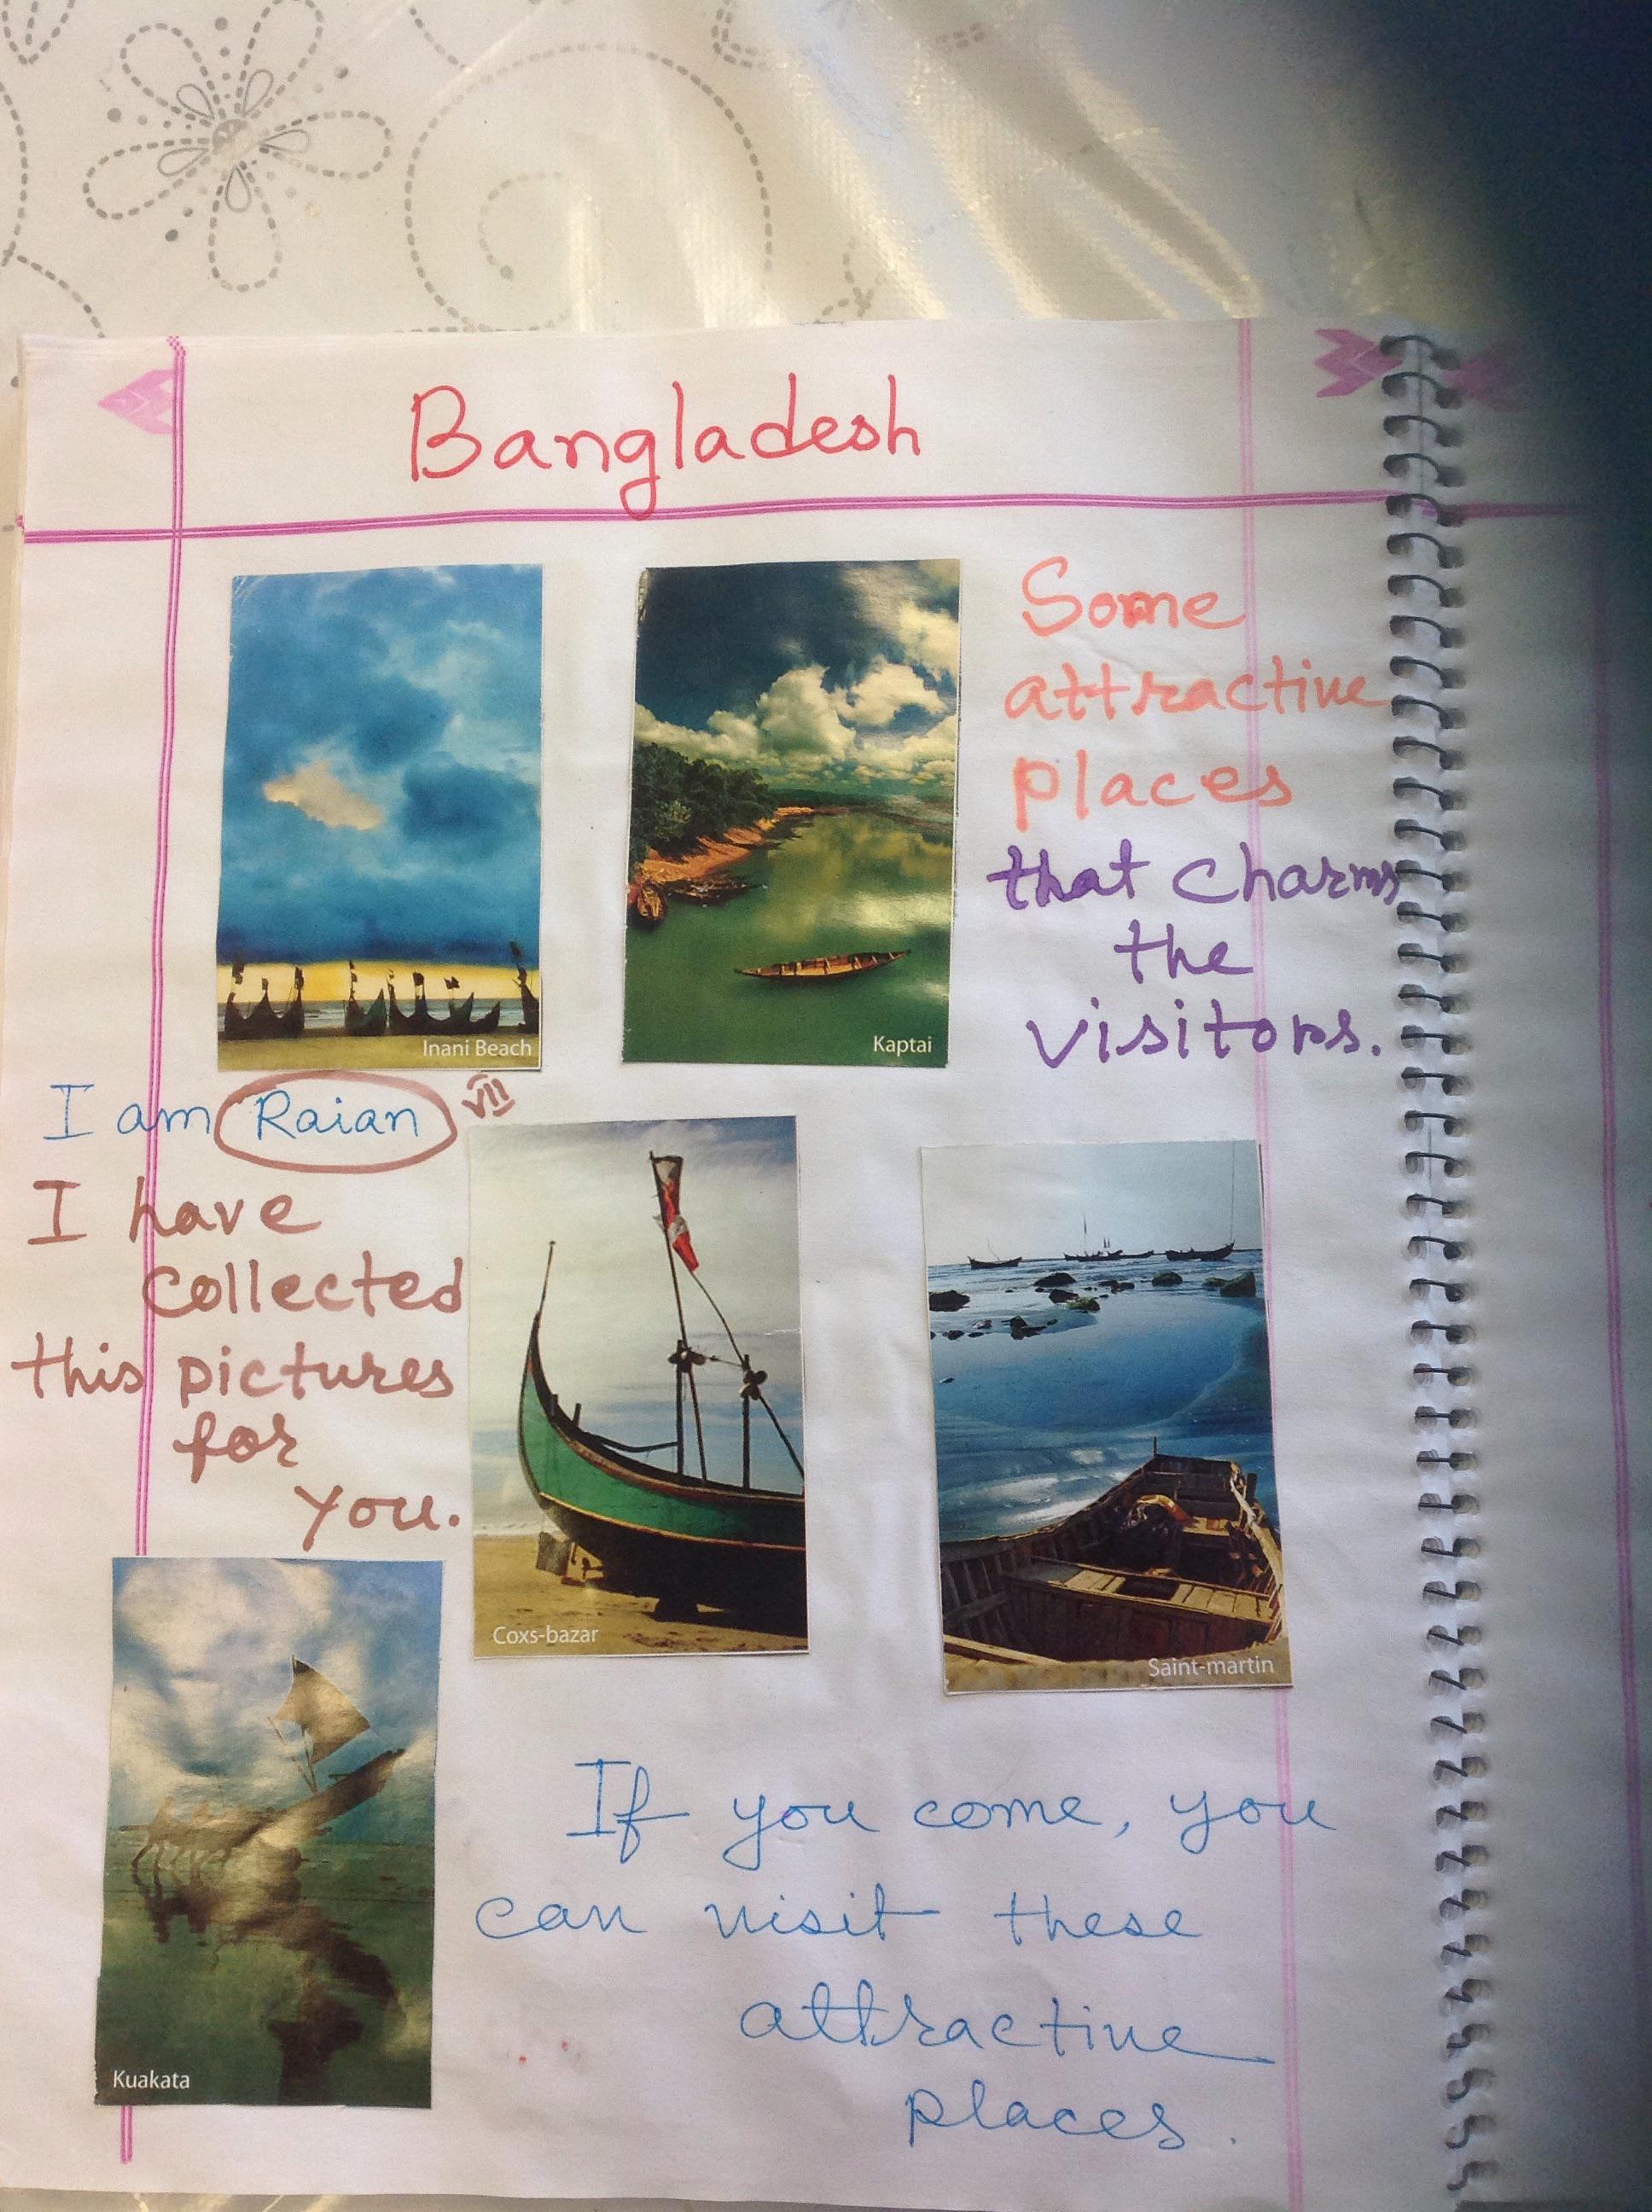 Bangladesh
Inani Beach
Kaptai
Some
attractive
places
that charms
the
visitors.
I am Raian VII
I have
collected
this pictures
for
you.
Coxs-bazar
Saint-martin
Kuakata
If you come, you
can visit these
attractive
places.